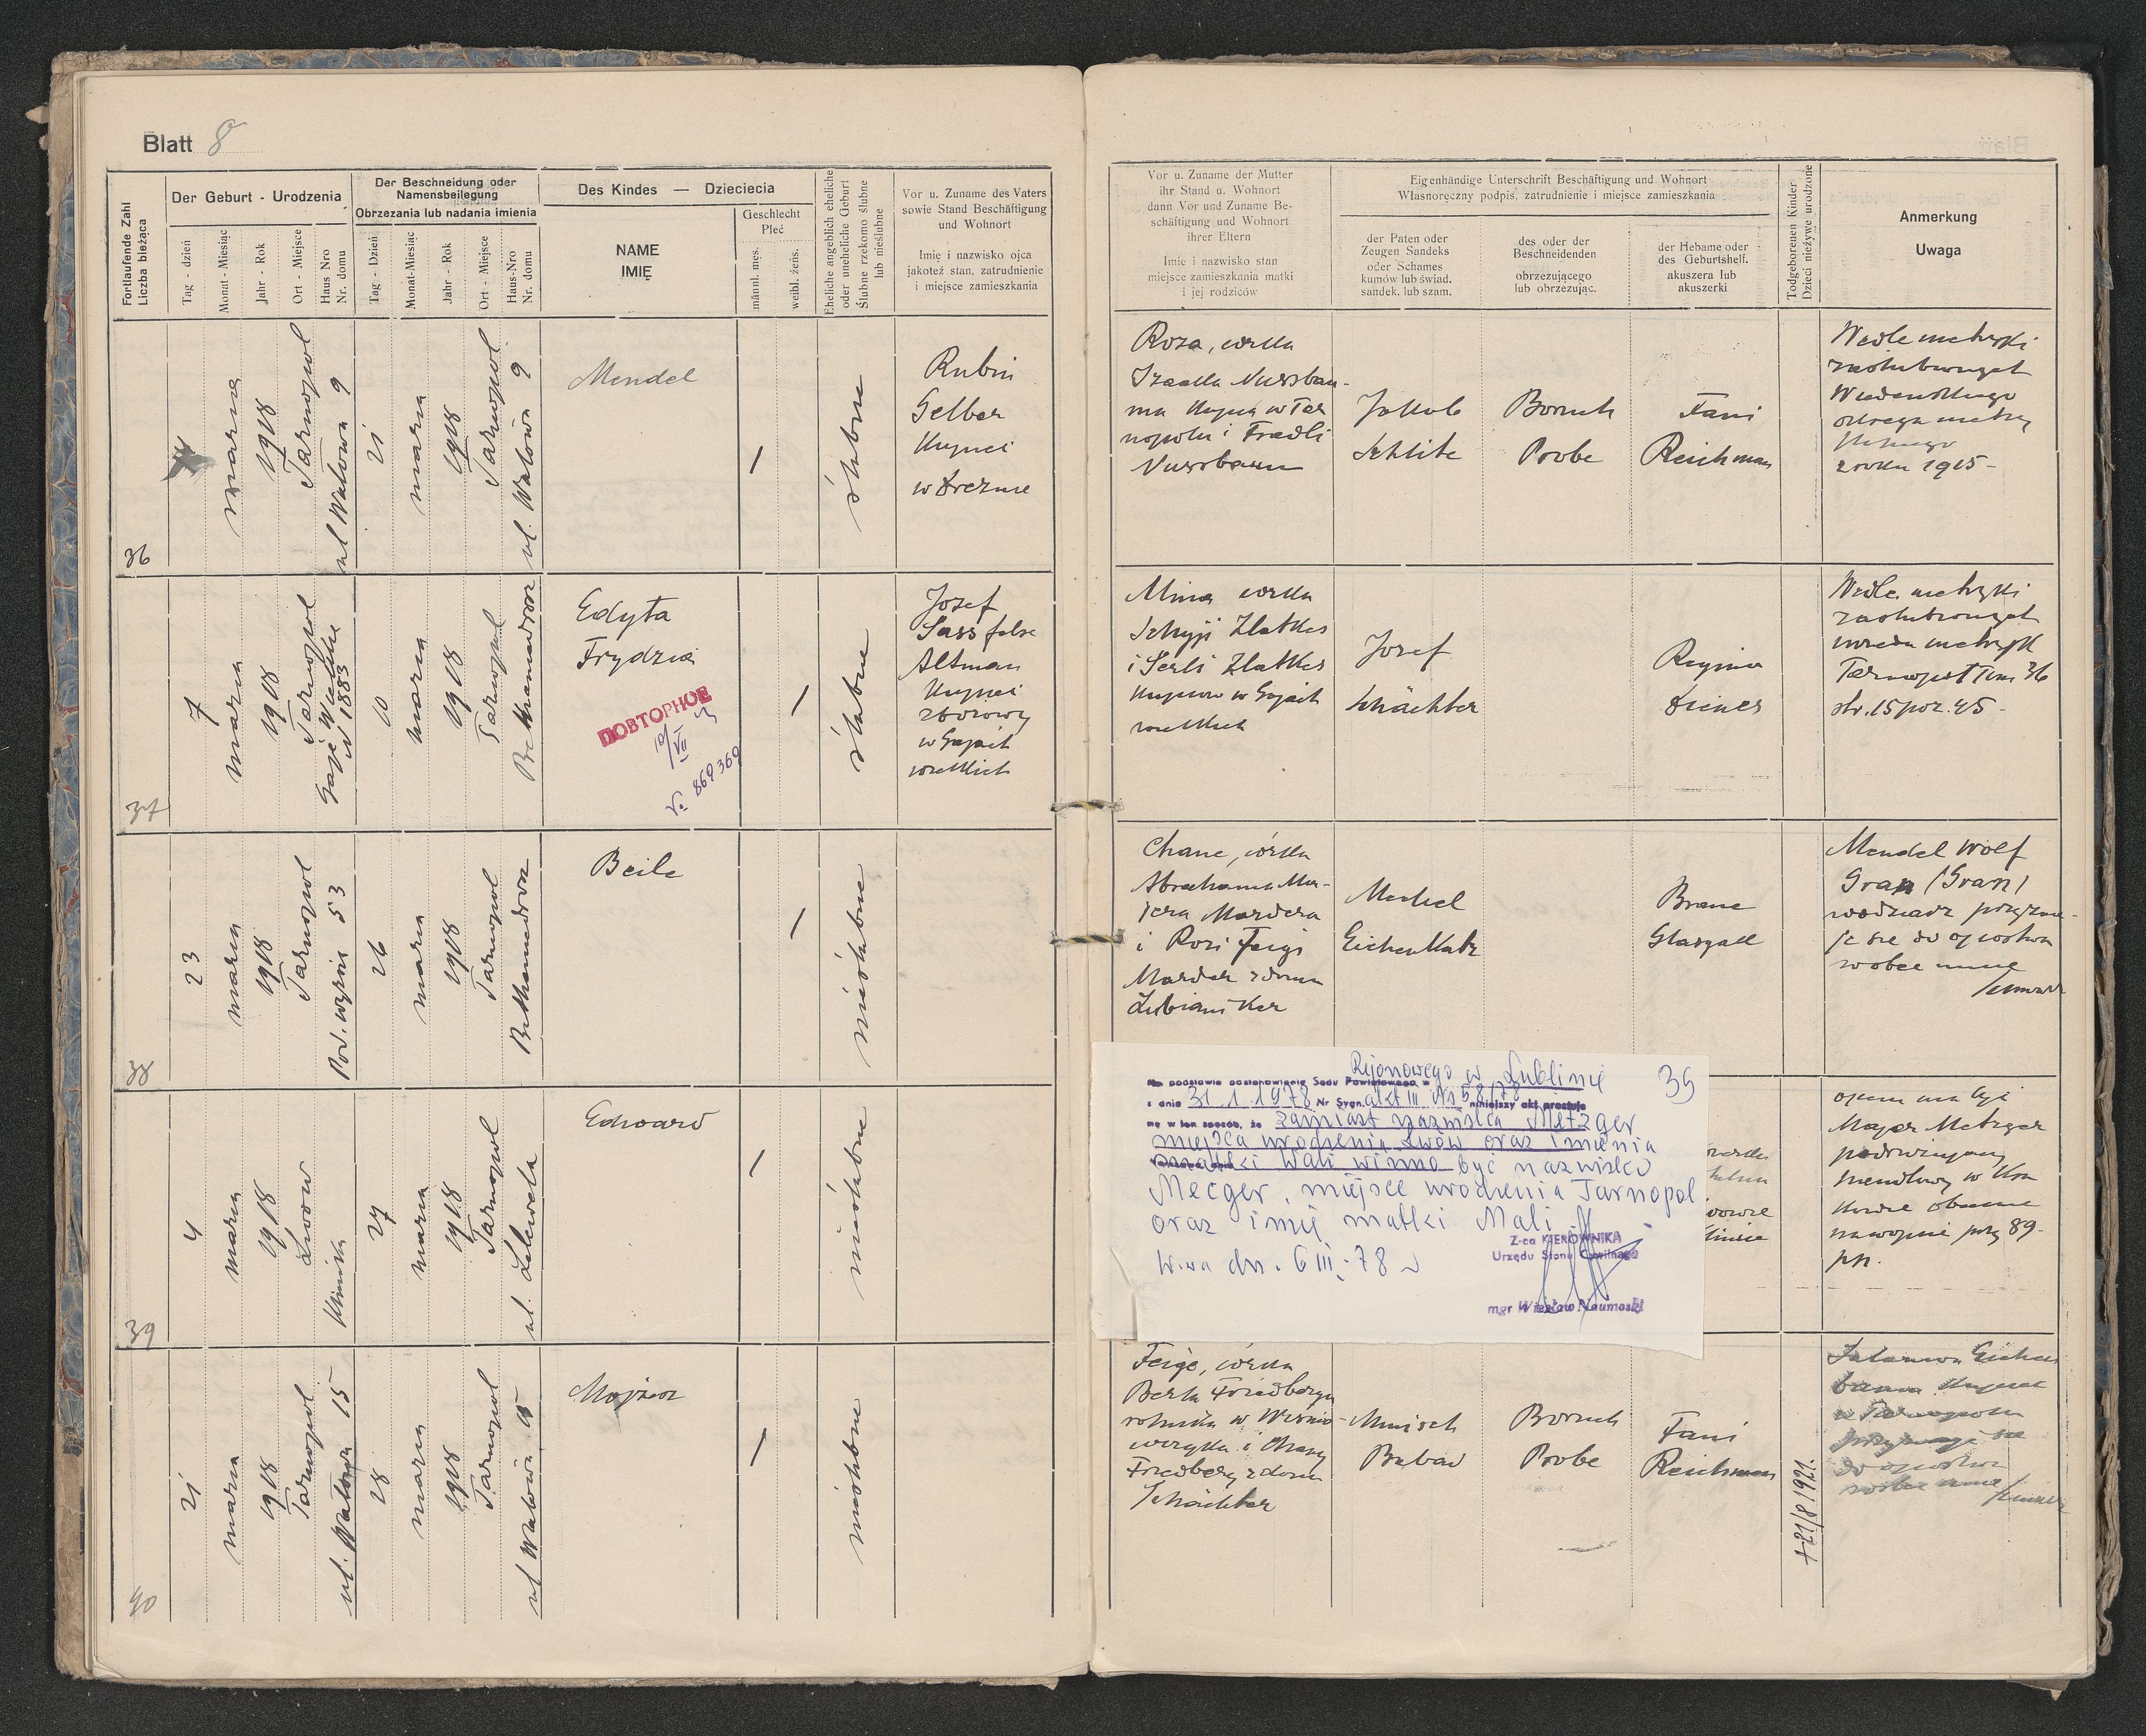 Blatt 8
Fortlaufende Zahl
Liczba bieżąca
Der Geburt - Urodzenia
Tag - dzień
Monat - Miesiąc
Jahr - Rok
Ort - Miejsce
Haus Nro
Nr. domu
Der Beschneidung oder
Namensbeilegung
Obrzezania lub nadania imienia
Tag - Dzień
Monat-Miesiąc
Jahr - Rok
Ort - Miejsce
Haus-Nro
Nr. domu
Des Kindes — Dzieciecia
NAME
IMIĘ
Geschlecht
Płeć
männl. męs.
weibl. żeńs.
Eheliche angeblich eheliche
oder uneheliche Geburt
Ślubne rzekomo ślubne
lub nieślubne
Vor u. Zuname des Vaters
sowie Stand Beschäftigung
und Wohnort
Imię i nazwisko ojca
jakoteż stan, zatrudnienie
i miejsce zamieszkania
Vor u. Zuname der Mutter
ihr Stand u. Wohnort
dann Vor und Zuname Be-
schäftigung und Wohnort
ihrer Eltern
Imię i nazwisko stan
miejsce zamieszkania matki
i jej rodziców
Eigenhändige Unterschrift Beschäftigung und Wohnort
Własnoręczny podpis, zatrudnienie i miejsce zamieszkania
der Paten oder
Zeugen Sandeks
oder Schames
kumów lub świad.
sandek. lub szam.
des oder der
Beschneidenden
obrzezującego
lub obrzezując.
der Hebame oder
des Geburtshelf.
akuszera lub
akuszerki
Todgeborenen Kinder
Dzieci nieżywe urodzone
Anmerkung
Uwaga
36
marca
1918
Tarnopol
ul Wałowa 9
21
marca
1918
Tarnopol
ul. Wałowa 9
Mendel
/
ślubne
Rubin
Gelber
kupiec
Roza, córka
Izaaka Nussbau-
ma kupca w Tar
nopolu i Fradli
Nussbaum
Jakob
Schlite
Boruch
Probe
Fani
Reichman
Wedle metryki
zaślubionych
z roku 1915 -
37
7
marca
1918
Tarnopol
Gaje Wielkie
1883
10
marca
1918
Tarnopol
Edyta
Frydzia
ПОВТОРНОЕ
10/VII
№ 869369
/
ślubne
Jozef
Sass false
Altman
kupiec
zbożowy
w Gajach
wielkich
Mina córka
i Serli Zlatkes
w Gajach
wielkich
Jozef
Schächter
Regina
Wedle metryki
zaślubionych
Tarnopol Tom 36
str. 15 poz. 45 -
38
23
marca
1918
Tarnopol
53
26
marca
1918
Tarnopol
Beile
/
nieślubne
Chane, córka
Abrahama
Mardera
i Rozi Feigi
Marder z domu
Mechel
Eichenkatz
Brane
Glasgall
Mendel Wolf
Gran (Gran)
wobec mnie
39
4
marca
1918
Lwow
klinika
27
marca
1918
Tarnopol
ul. Lelewela
Edward
/
nieślubne
Rejonowego w Lublinie
39
Na podstawie postanowienia Sądu Powiatowego w
z dnia 31 1 1978 Nr Sygn. akt III Ns 58/78 niniejszy akt prostuje
się w ten sposób, że zamiast nazwiska Metzger
miejsca urodzenia Lwów oraz imienia
matki Wali winno być nazwisko
Mecger, miejsce urodzenia Tarnopol
oraz imię matki Mali
W-wa dn. 6 III - 78
Z-ca KIEROWNIKA
Urzędu Stanu Cywilnego
mgr Wiesław Naumoski
Major Metzger
40
21
marca
1918
Tarnopol
ul. Wałowa 15
28
marca
1918
Tarnopol
ul Wałowa 15
Mojżesz
/
nieślubne
Feige, córka
Berla Friedberga
rolnika w Wiśnio-
wczyku i Chany
Friedberg z domu
Schächter
Boruch
Probe
Fani
Reichman
+21/8 1921.
w Tarnopolu